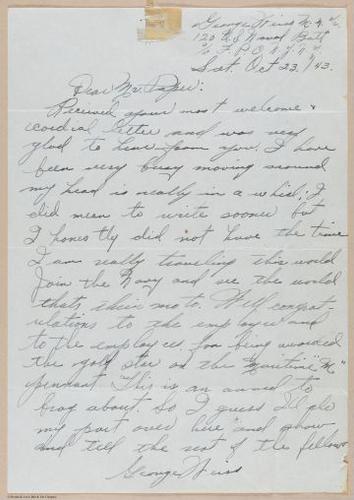 George Weiss M.M. 2/c
120th U.S. Naval Batt
c/o F.P.O. N.Y. N.Y.
Sat. Oct 23, /43.
Dear Mr.
Received your most welcome &
cordial letter and was very
glad to hear from you. I have
been very busy moving around
my head is really in a whirl; I
did mean to write sooner but
I honestly did not have the time
I am really traveling this world
Join the Navy and see the world
thats their moto. Well congrat
ulations to the employer and
to the employees for being awarded
the gold star on the "Maritime" "M"
pennant This is an award to
brag about. So I guess I'll do
my part over here and show
and tell the rest of the fellows
George Weiss